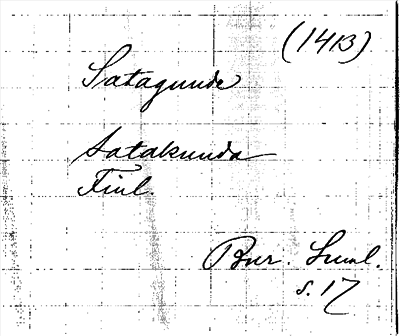 (1413)
Satagunde
Satakunda
Finl.
Bur. Saml.
s. 17